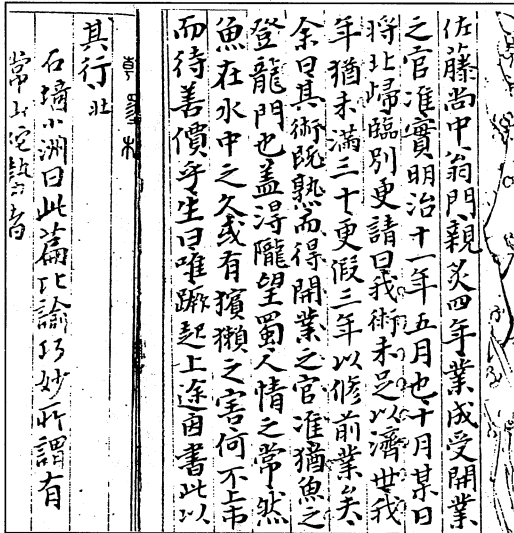 佐藤尚中翁門親炙四年業成受開業
之官准實明治十一年五月也十月某日
将北歸臨別更請曰我術未足以濟世我
年猶未滿三十更假三年以修前業矣
余曰其術既熟而得開業之官准猶魚之
登龍門也蓋得隴望蜀人情之常然
魚在水中之久或有獱獺之害何不上市
而待善價乎生曰唯蹶起上途因書此以
其行壯
石埼小洲曰此篇比諭巧妙所謂有
常山蛇勢者